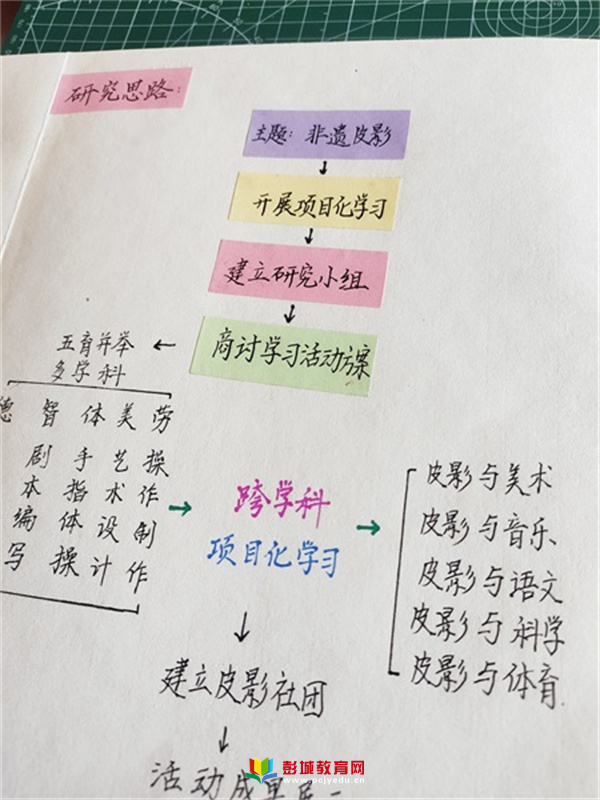 研究思路:
主题: 非遗皮影
↓
开展项目化学习
↓
建立研究小组
↓
商讨学习活动方案
五育并举 ←
多学科
德 智 体 美 劳
剧 手 艺 操
本 指 术 作
编 体 设 制
写 操 计 作
→
跨学科
项目化学习
→
皮影与美术
皮影与音乐
皮影与语文
皮影与科学
皮影与体育
↓
建立皮影社团
↓
活动成果展
彭城教育网
www.pcjyedu.cn